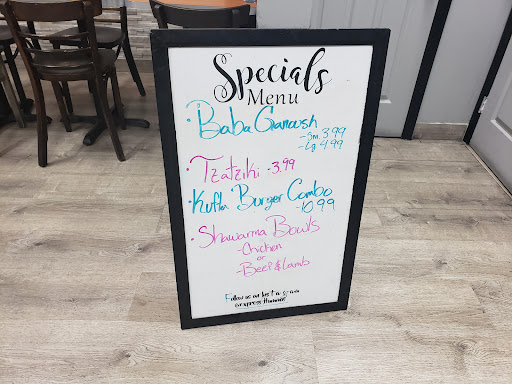 Specials
Menu
• Baba Ganoush
- Sm. 3.99
- Lg. 4.99
• Tzatziki - 3.99
• Kufta Burger Combo
- 10.99
• Shawarma Bowls
- Chicken
or
- Beef & Lamb
Follow us on Instagram